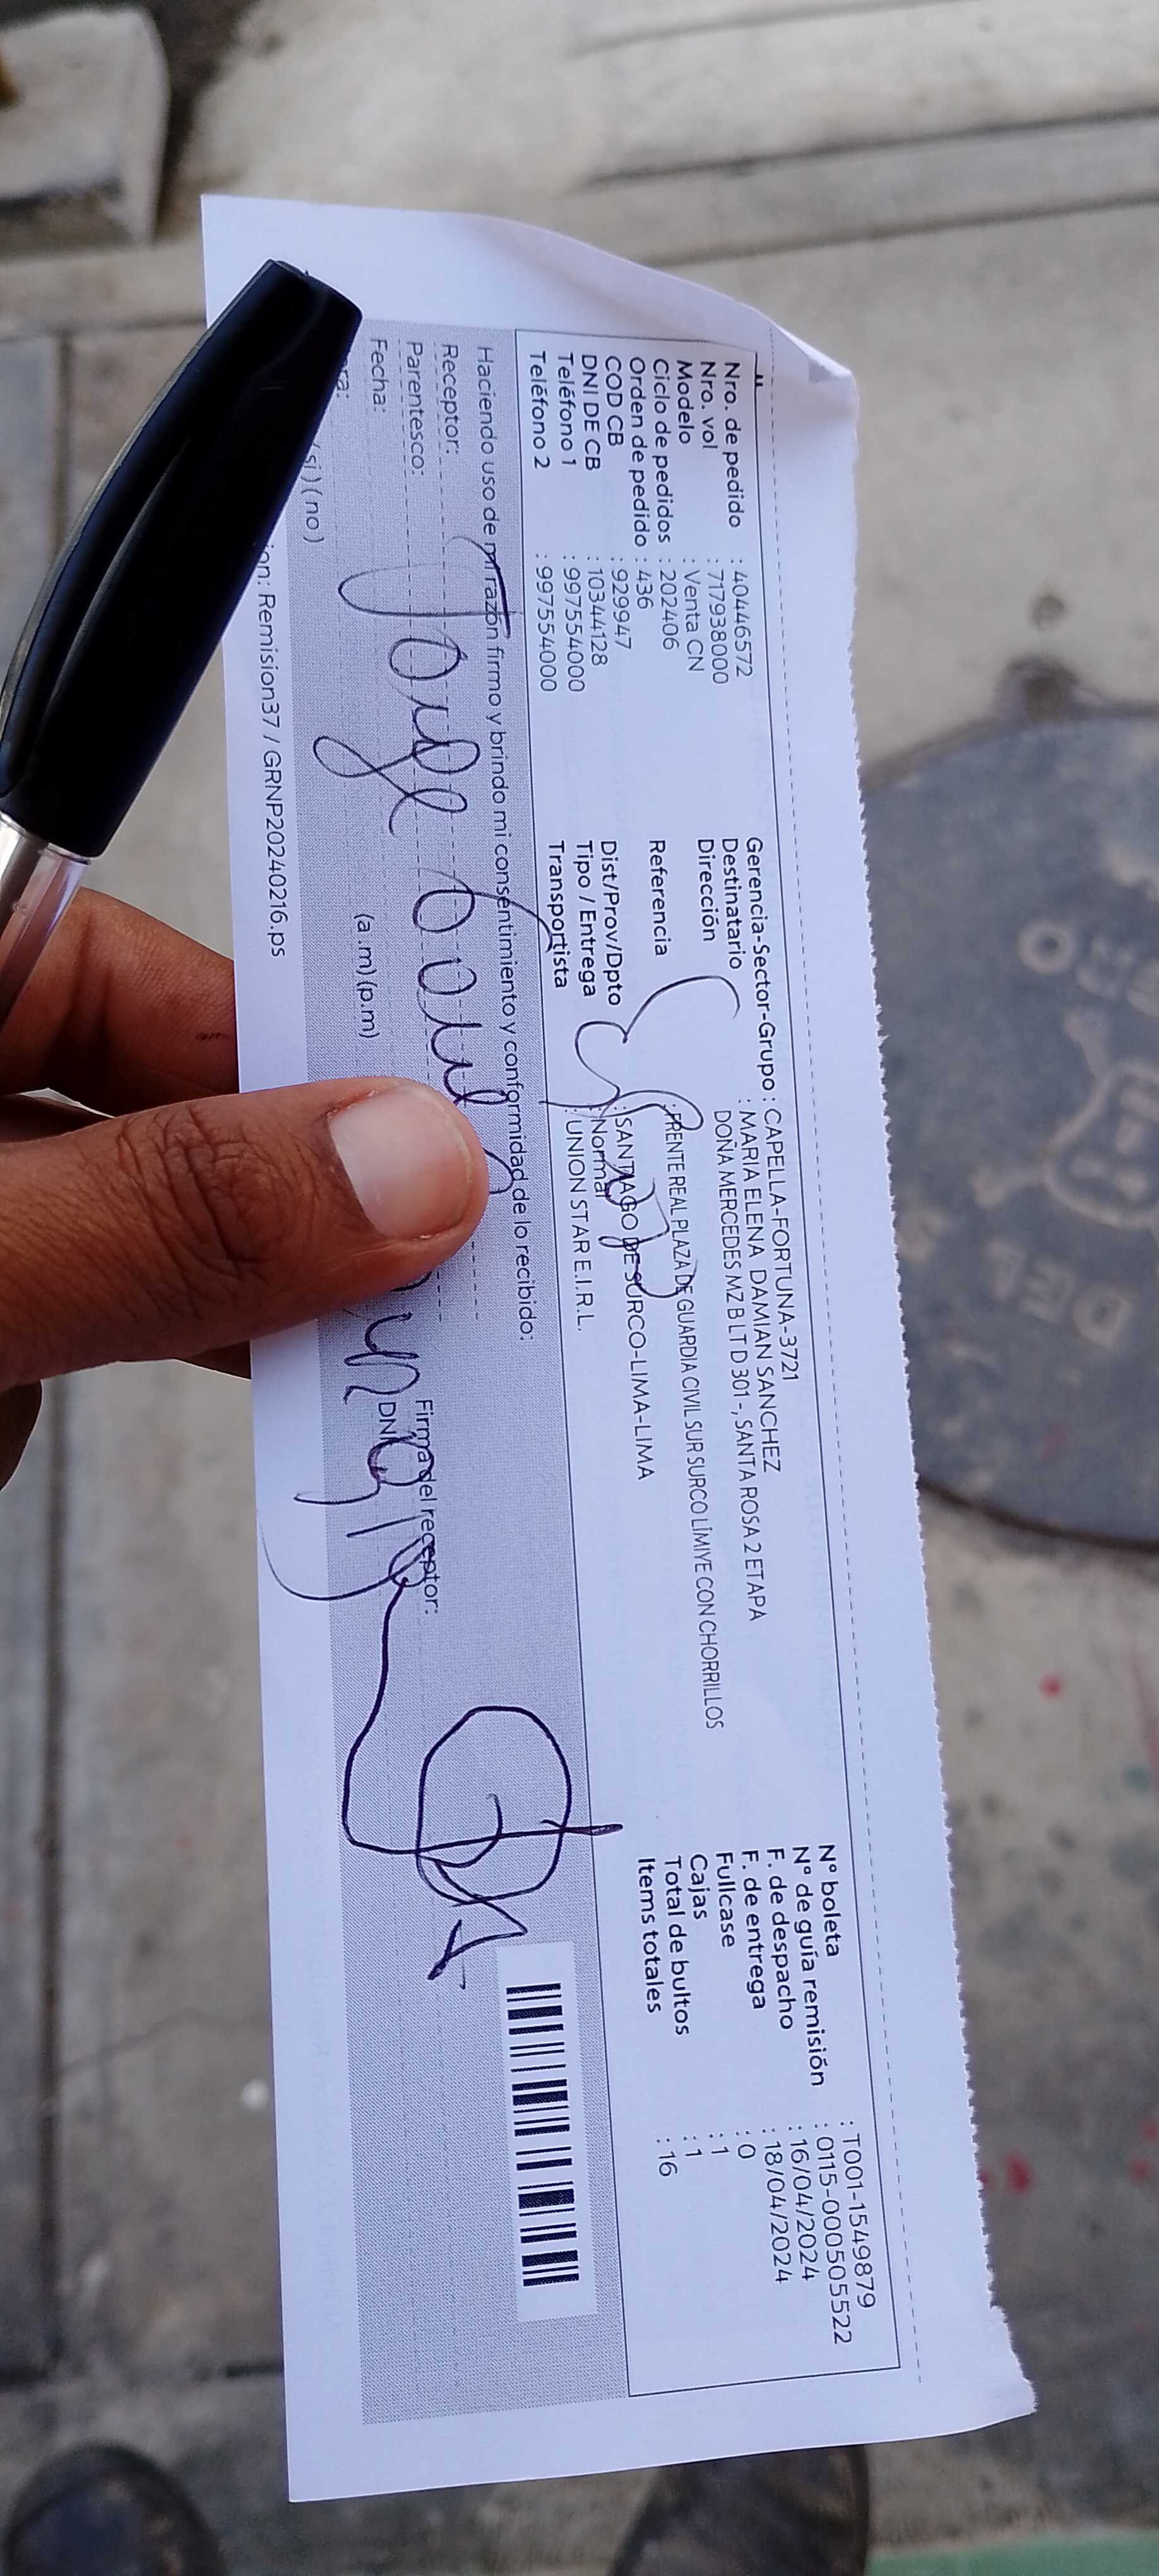 Nro. de pedido : 40446572
Nro. vol : 717938000
Modelo : Venta CN
Ciclo de pedidos : 202406
Orden de pedido : 436
COD CB : 929947
DNI DE CB : 10344128
Teléfono 1 : 997554000
Teléfono 2 : 997554000
Gerencia-Sector-Grupo : CAPELLA-FORTUNA-3721
Destinatario : MARIA ELENA DAMIAN SANCHEZ
Dirección DOÑA MERCEDES MZ B LT D 301 -, SANTA ROSA 2 ETAPA
Referencia : FRENTE REAL PLAZA DE GUARDIA CIVIL SUR SURCO LÍMIYE CON CHORRILLOS
Dist/Prov/Dpto : SANTIAGO DE SURCO-LIMA-LIMA
Tipo / Entrega : Normal
Transportista : UNION STAR E.I.R.L.
N° boleta : T001-1549879
N° de guía remisión : 0115-000505522
F. de despacho : 16/04/2024
F. de entrega : 18/04/2024
Fullcase : 0
Cajas : 1
Total de bultos : 1
Items totales : 16
Haciendo uso de mi razón firmo y brindo mi consentimiento y conformidad de lo recibido:
Receptor:
Jorge
Parentesco:
Firma del receptor:
Fecha:
DNI
(a.m) (p.m)
(si) (no)
Remision37 / GRNP20240216.ps